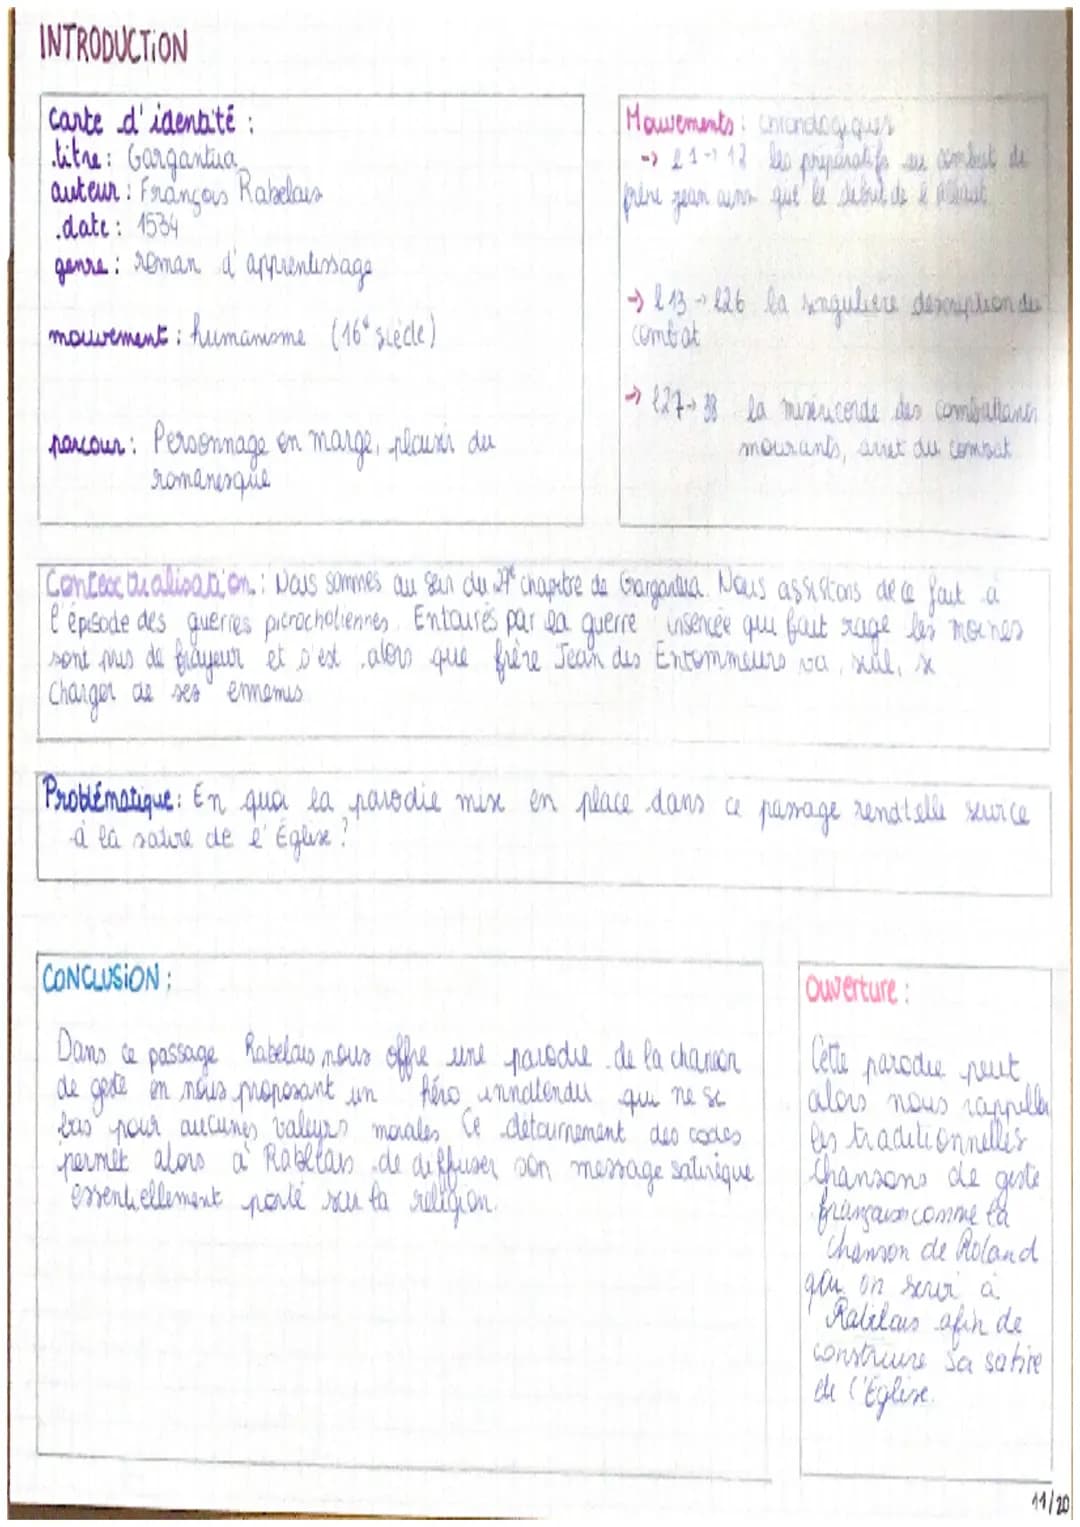 INTRODUCTION
Carte d'identité :
.titre : Gargantua
auteur : François Rabelais
.date : 1534
genre : roman d'apprentissage
mouvement : humanisme (16e siècle)
parcour : Personnage en marge, plaisir du
romanesque
Mouvements : chronologiques
-> l 1 -> 12 les préparatifs au combat de
frère jean ainsi que le début de
-> l 13 -> l26 la singulière description du
combat
-> l27 -> 38 la miséricorde des combattants
mourants, arret du combat
Contextualisation : Nous sommes au sein du 27e chapitre de Gargantua. Nous assistons de ce fait à
l'épisode des guerres picrocholiennes. Entourés par la guerre insencée qui fait rage les moines
sont pris de frayeur et s'est alors que frère Jean des Entommeurs va, seul, se
charger de ses ennemis
Problématique : En quoi la parodie mise en place dans ce passage rendt elle service
à la satire de l'Église ?
CONCLUSION :
Dans ce passage Rabelais nous offre une parodie de la chanson
de geste en nous proposant un héro inattendu qui ne se
bas pour aucunes valeurs morales Ce détournement des codes
permet alors à Rabelais de diffuser son message satirique
essentiellement porté sur la religion.
Ouverture :
Cette parodie peut
alors nous rappeller
les traditionnelles
chansons de geste
françaises comme la
Chanson de Roland
qui on servi à
Rabelais afin de
construire sa satire
de l'Eglise.
11/20